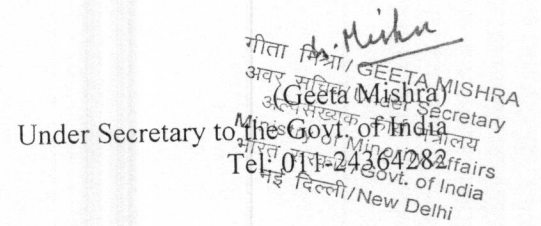 G. Mishra
गीता मिश्रा/GEETA MISHRA
अवर सचिव/Under Secretary
अल्पसंख्यक कार्य मंत्रालय
Ministry of Minority Affairs
भारत सरकार/Govt. of India
नई दिल्ली/New Delhi
(Geeta Mishra)
Under Secretary to the Govt. of India
Tel: 011-24364282